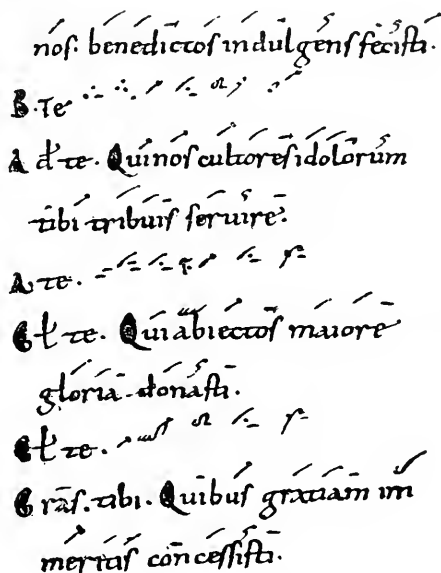 nos. benedictos indulgens fecisti.
B. Te
A d te. Qui nos cultores idolorum
tibi tribuis seruire.
A. te.
G l te. Qui abiectos maiore
gloria donasti.
G l te.
G rās. tibi. Quibus gratiam im
meritis concessisti.